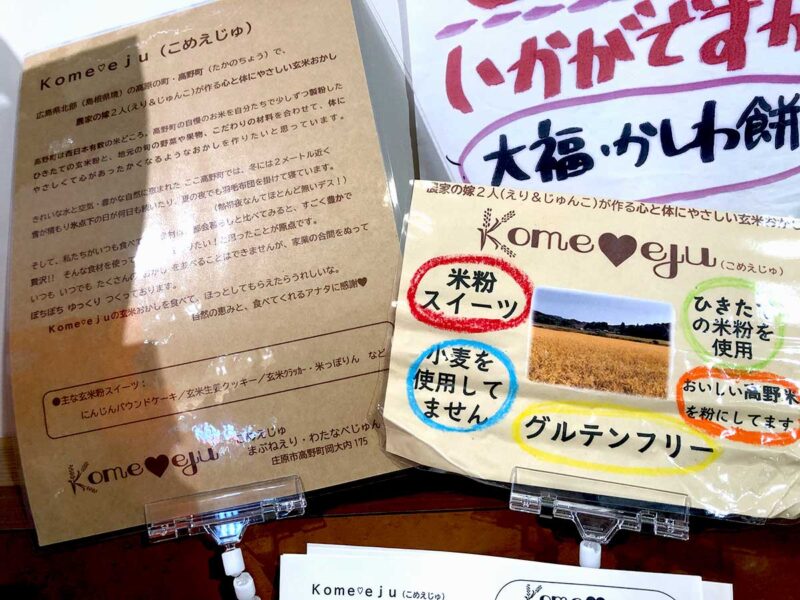 Kome♡eju(こめえじゅ)
広島県北部(島根県境)の高原の町・高野町(たかのちょう)で、
農家の嫁2人(えり&じゅんこ)が作る心と体にやさしい玄米おかし
高野町は西日本有数の米どころ。高野町の自慢のお米を自分たちで少しずつ製粉した
ひきたての玄米粉と、地元の旬の野菜や果物、こだわりの材料を合わせて、体に
やさしくて心があったかくなるようなおかしを作りたいと思っています。
きれいな水と空気・豊かな自然に抱まれた ここ高野町では、冬には2メートル近く
雪が積もり氷点下の日が何日も続いたり、夏の夜でも羽毛布団を掛けて寝ています。
(熱帯夜なんてほとんど無いデス!)
そして、私たちがいつも食べて 材は、都会暮らしと比べてみると、すごく豊かで
贅沢!! そんな食材を使って りたい!と思ったことが原点です。
いつも いつでも たくさんの おかし を並べることはできませんが、家業の合間をぬって
ぼちぼち ゆっくり つくっております。
Kome♡eju の玄米おかしを食べて、ほっとしてもらえたらうれしいな。
自然の恵みと、食べてくれるアナタに感謝♥
●主な玄米粉スイーツ:
にんじんパウンドケーキ/玄米生姜クッキー/玄米クラッカー・米っぽりん など
Kome♥eju
こめえじゅ
まぶねえり・わたなべじゅん
庄原市高野町岡大内175
いかがですか
大福・かしわ餅
農家の嫁2人(えり&じゅんこ)が作る心と体にやさしい玄米おかし
Kome♥eju
(こめえじゅ)
米粉
スイーツ
ひきたて
の米粉を
使用
小麦を
使用して
ません
おいしい高野米
を粉にしてます
グルテンフリー
Kome♡eju(こめえじゅ)
Kome♥